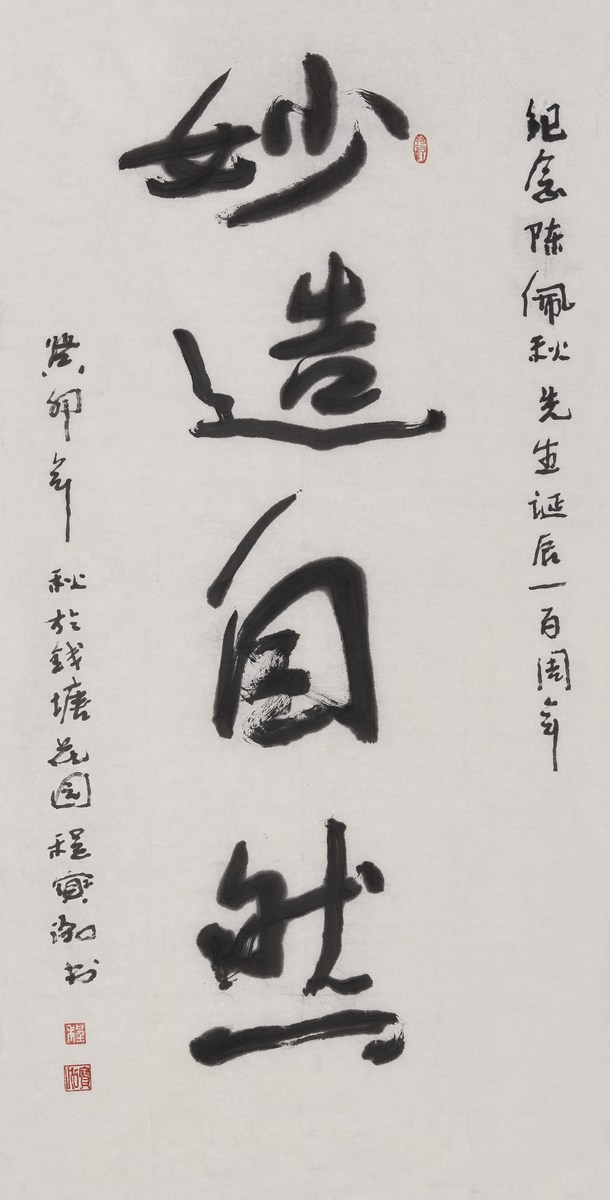 纪念陈佩秋先生诞辰一百周年
妙造自然
癸卯年秋於钱塘花园程寶泓書
程